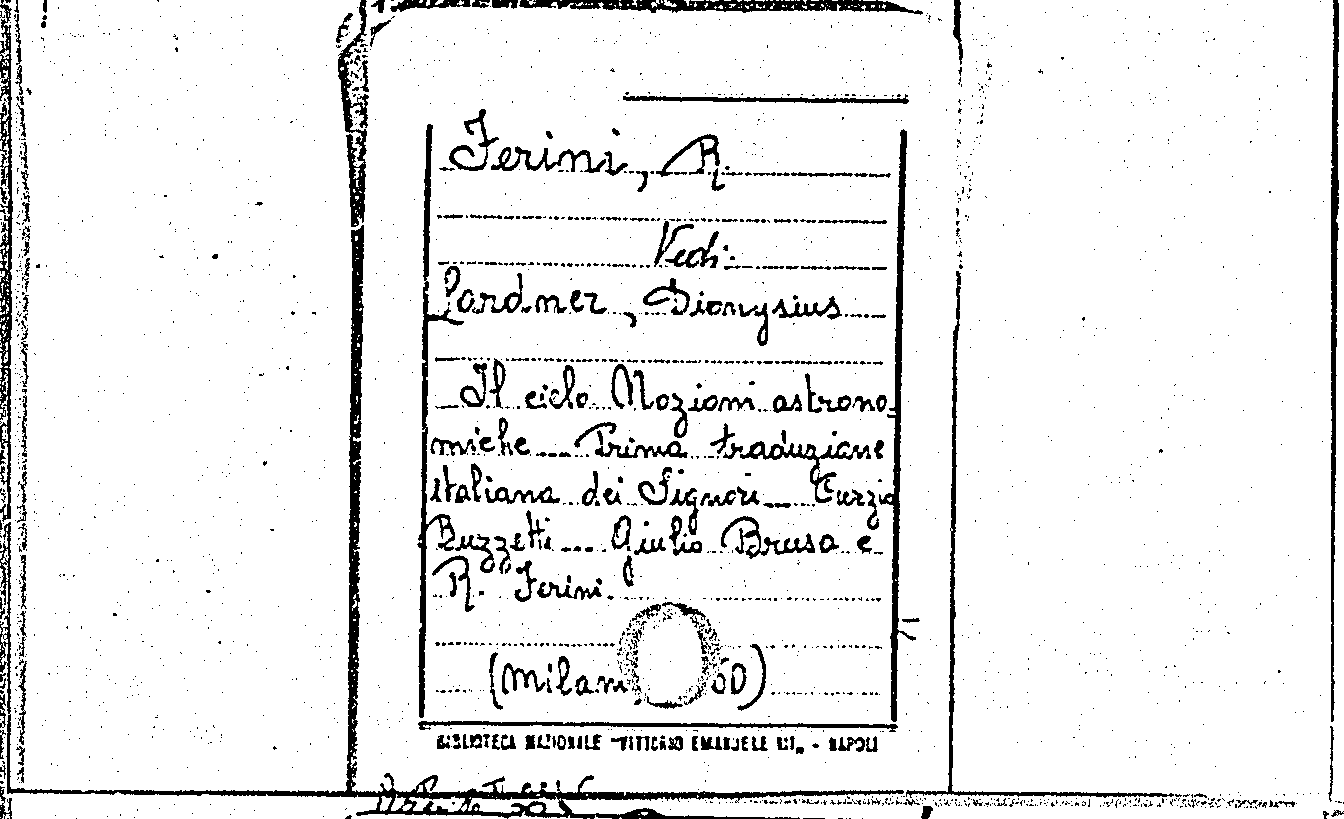 Ferini, R.
Vedi:
Lardner, Dionysius
Il cielo Nozioni astrono-
miche ... Prima traduzione
italiana dei Signori ... Curzio
Buzzetti ... Giulio Brusa e
R. Ferini.
(Milan 60)
BIBLIOTECA NAZIONALE "VITTORIO EMANUELE III„ - NAPOLI